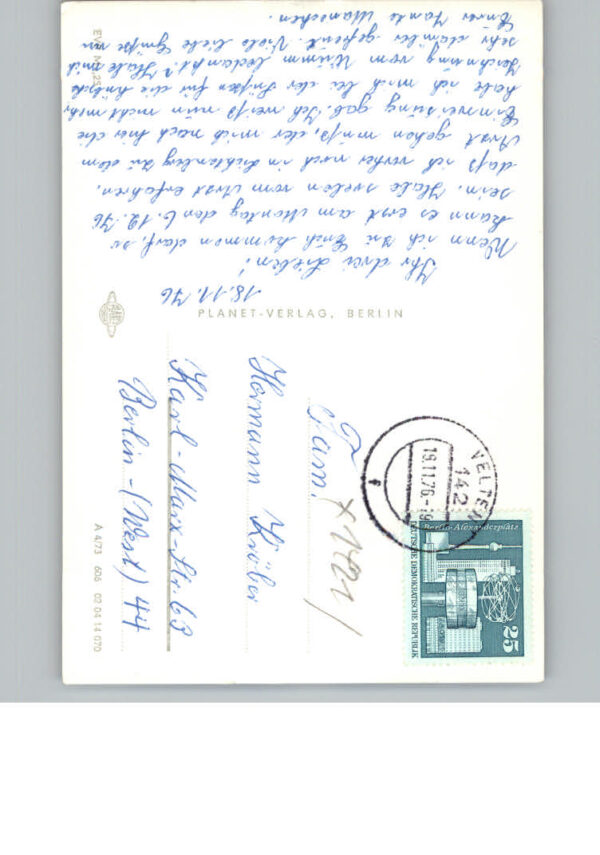 18.11.76
Ihr drei Lieben!
Wenn ich zu Euch kommen darf, so
kann es erst am Montag den 6.12.76
sein. Habe soeben vom Arzt erfahren,
daß ich vorher noch in Lichtenberg zu dem
Arzt gehen muß, der mich nach hier die
Einweisung gab. Ich weiß nun nicht mehr
habe ich mich bei der für die hübsche
Zeichnung vom bedankt? Habe mich
sehr darüber gefreut. Viele liebe Grüße von
Eurer Tante
EVP M 0,25
PLANET-VERLAG, BERLIN
Fam.
Hermann
Karl-Marx-Str. 63
Berlin-(West) 44
A 4/73 606 02 04 14 070
VELTEN
142
19.11.76-19
f
Berlin-Alexanderplatz
DEUTSCHE DEMOKRATISCHE REPUBLIK
25